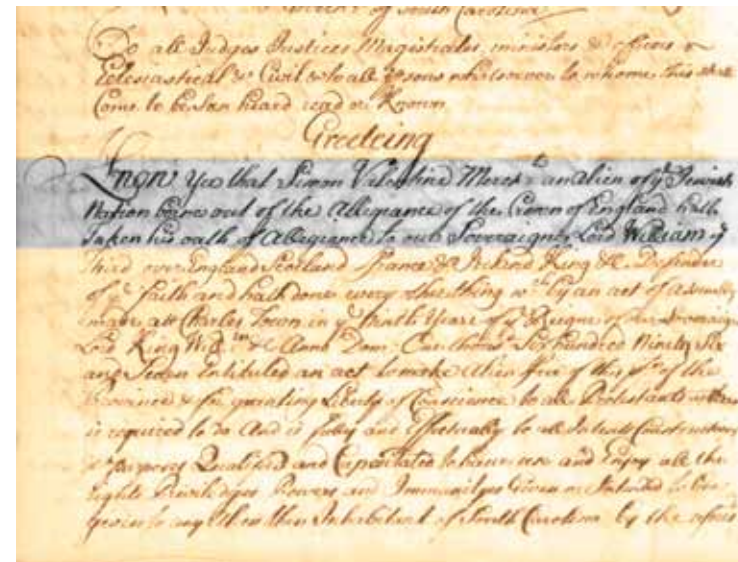 of South Carolina
To all Judges Justices Magistrates, ministers & officers
Eclesiastical & Civil & to all psons whatsoever to whome this shall
Come to be seen heard read or Known
Greeteing
Know Yee that Simon Valentine Mercht an alien of ye Jewish
Nation borne out of the Allegiance of the Crown of England hath
Taken his oath of Allegiance to our Sovereigne Lord William ye
Third over England Scotland France & Ireland King &c Defender
of ye faith and hath done every other thing wch by an act of Assembly
made att Charles Town in ye Ninth Year of ye Reigne of our Soveraign
Lord King Willm &c Anno Dom. One thousd Six hundred Ninety Six
and Seven Entituled an act to make alien free of this pt of the
Province & for granting Liberty of Conscience to all Protestants
is required to do And is fully and Effectually to all Intents Constructions
& purposes Qualified and Capacitated to have use and Enjoy all the
Rights Priviledges Powers and Immunityes Given or Intended to be
given to any Alien then Inhabitant of South Carolina by the